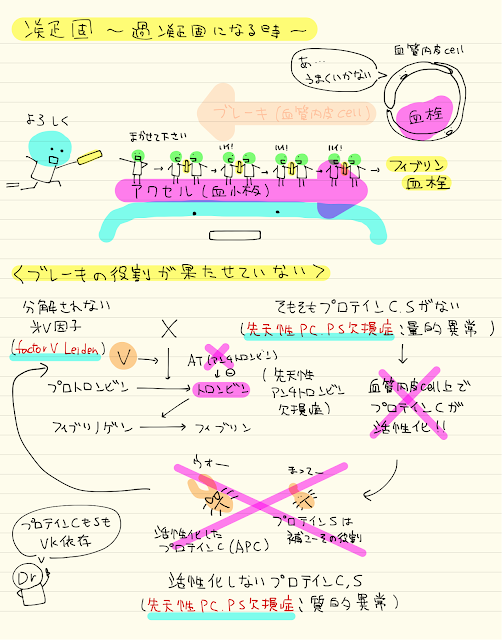 凝固 〜過凝固になる時〜
血管内皮cell
あ…
うまくいかない
ブレーキ(血管内皮cell)
血栓
よろしく
まかせて下さい
ハイ!
ハイ!
ハイ!
フィブリン
血栓
アクセル(血小板)
<ブレーキの役割が果たせていない>
分解されない
光V因子
(factor V Leiden)
X
V
AT(アンチトロンビン)
⊖
プロトロンビン
トロンビン
(先天性
アンチトロンビン
欠損症)
フィブリノゲン
フィブリン
そもそもプロテインC.Sがない
(先天性PC.PS欠損症:量的異常)
血管内皮cell上で
プロテインCが
活性化!!
ウォー
まってー
活性化した
プロテインC(APC)
プロテインSは
補エーその役割
プロテインCもSも
VK依存
Dr
活性化しないプロテインC,S
(先天性PC.PS欠損症:質的異常)